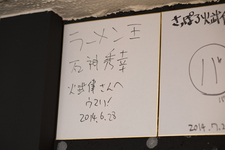 ラーメン王
石神秀幸
火武偉さんへ
ウマい!
2014.6.28
さっぽろ火武偉
2014.7.2